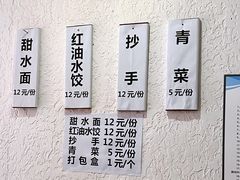 甜水面
12元/份
红油水饺
12元/份
抄手
12元/份
青菜
5元/份
甜水面 12元/份
红油水饺 12元/份
抄手 12元/份
青菜 5元/份
打包盒 1元/个